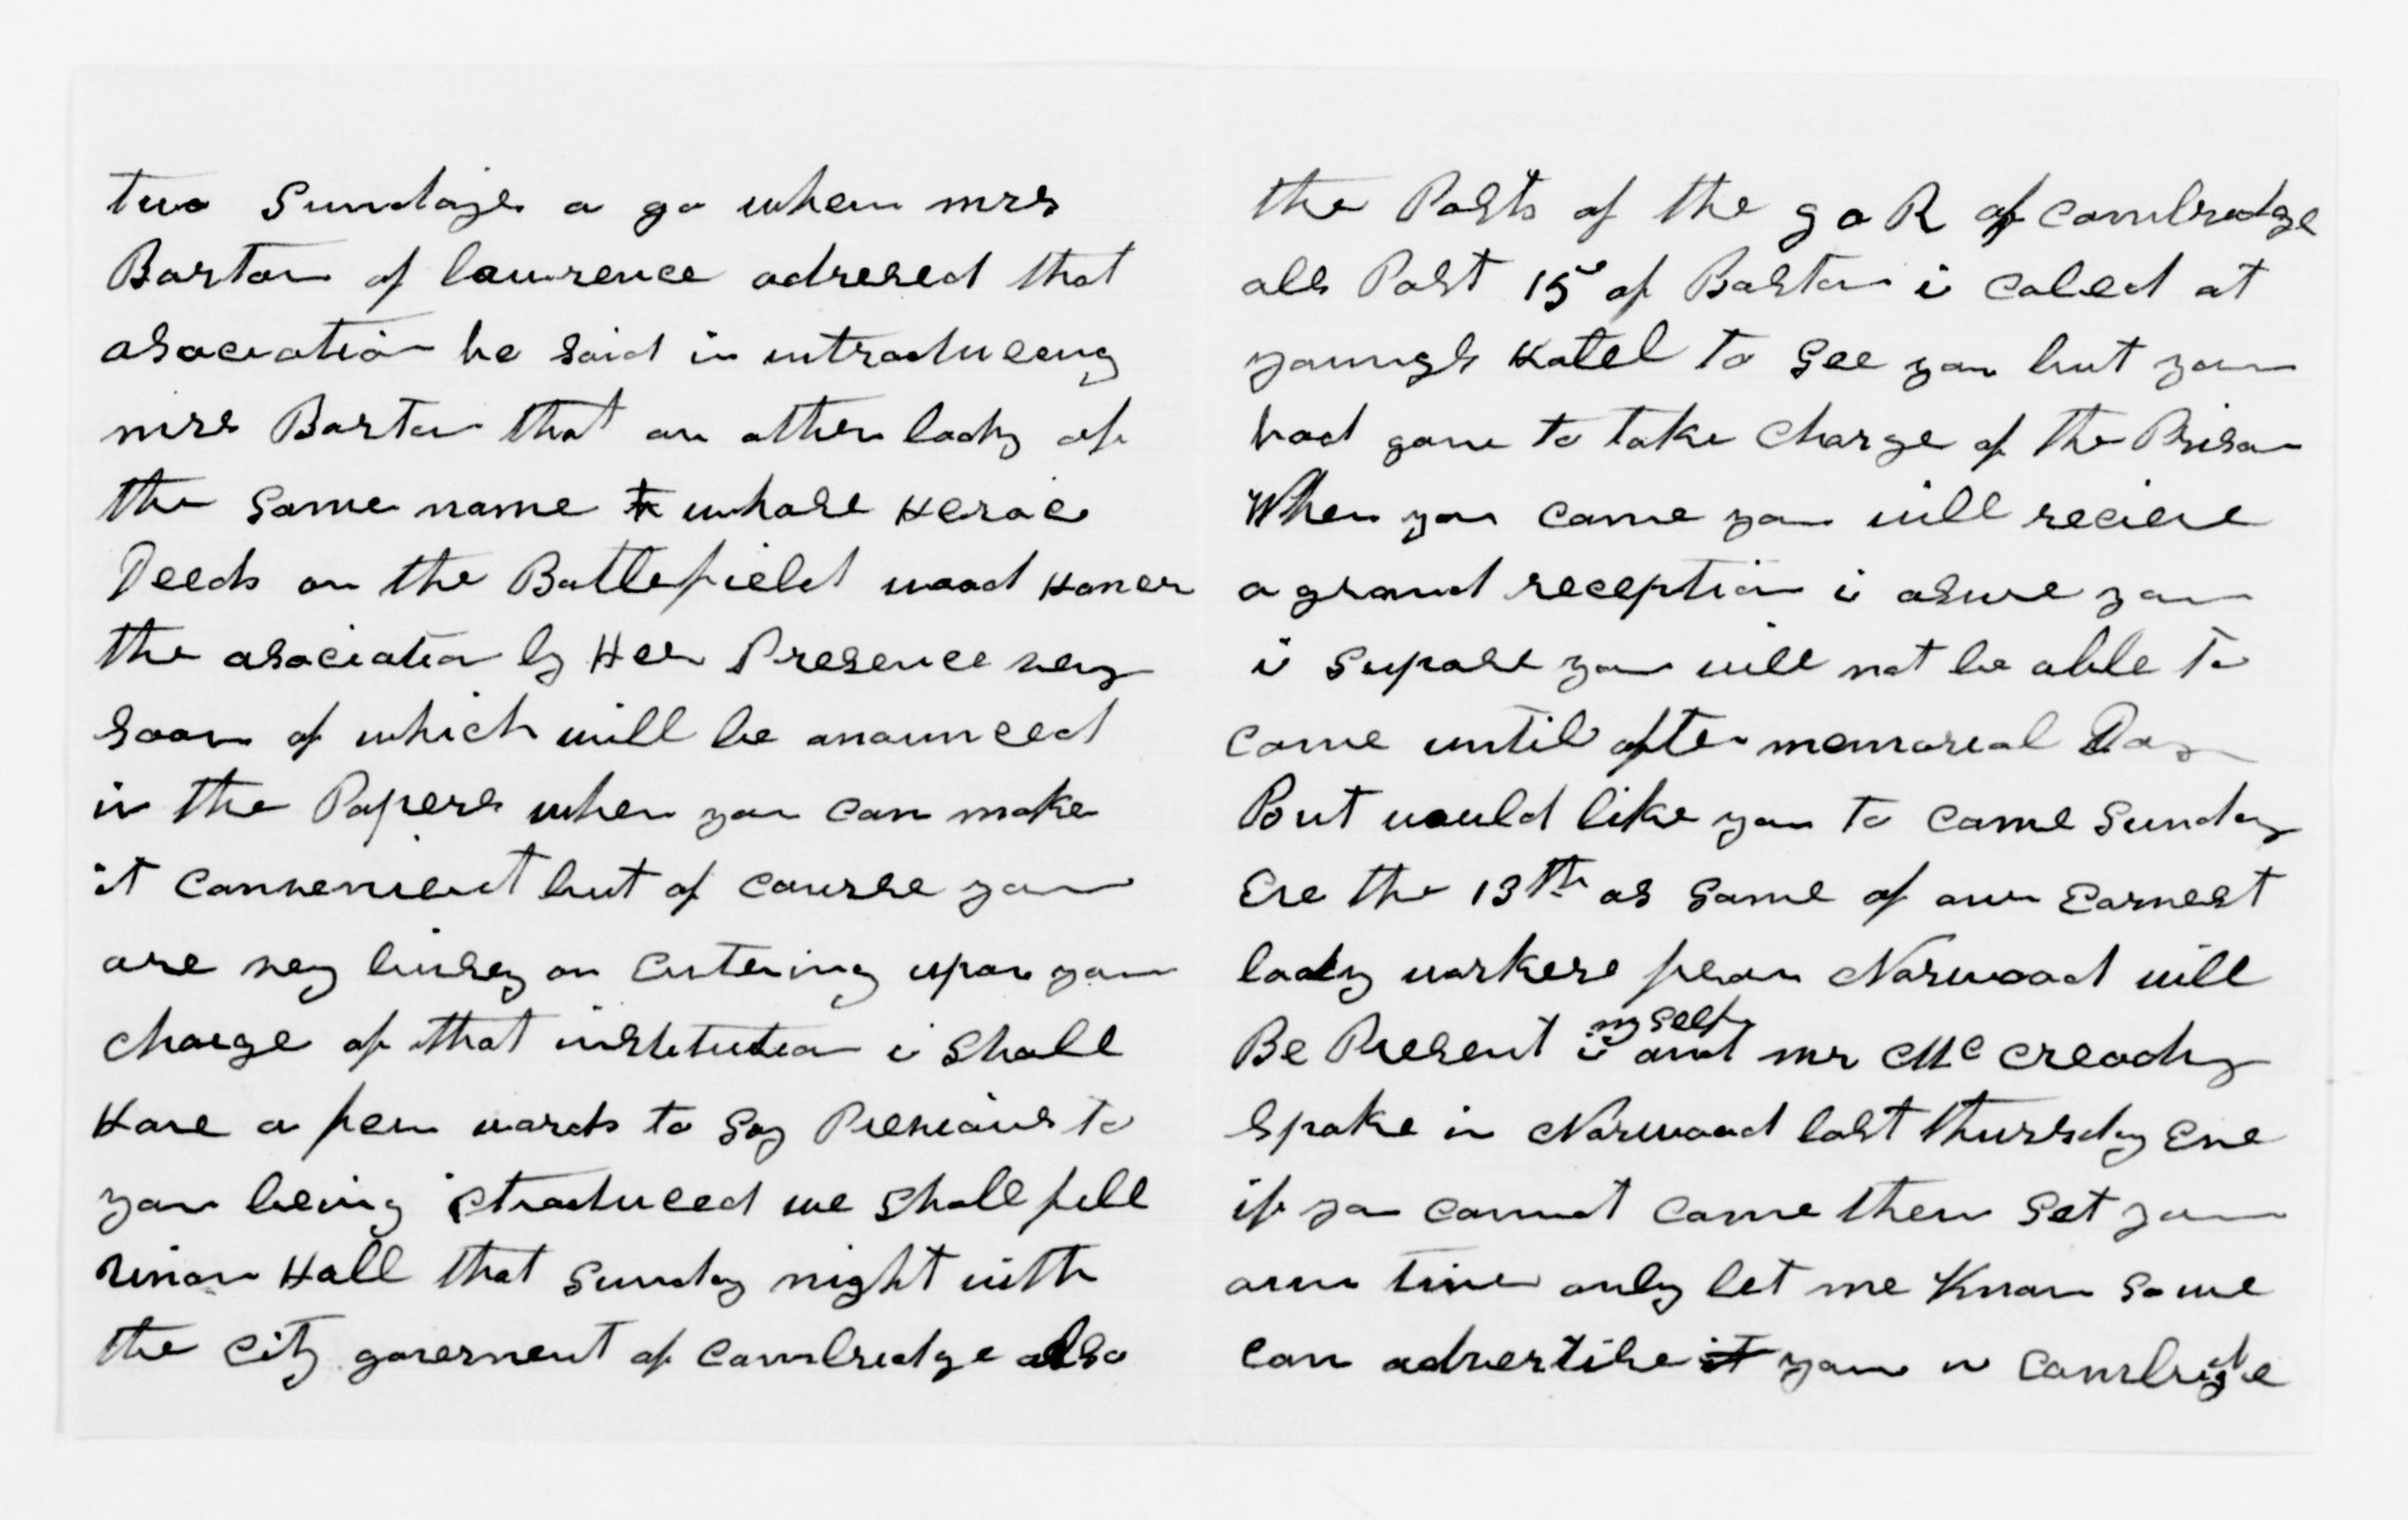 two Sundays a go when mrs
Barton of lawrence adresed that
asociation he said in introduceing
mrs Barton that an other lady of
the same name to whose Heroic
Deeds on the Battlefield wood Honer
the asociation by Her Presence very
soon of which will be anounced
in the Papers when you can make
it convenient but of course you
are very buisey on entering upon your
charge of that institution i shall
Have a few words to say Previous to
you being introduced we shall fill
union Hall that Sunday night with
the City goverment of Cambridge also
the Posts of the g a R of Cambredge
als Post 15 of Boston i caled at
youngs Hotel to see you but you
had gone to take charge of the Prison
When you come you will recieve
a grand reception i asure you
i supose you will not be able to
come until after memorial Day
But would like you to come Sunday
Eve the 13th as some of our Earnest
lady workers from Norwood will
Be Present i my self and mr Mc cready
spoke in Norwood last thursday Eve
if you cannot come then set your
own time only let me Know so we
can advertise it you in Cambridge